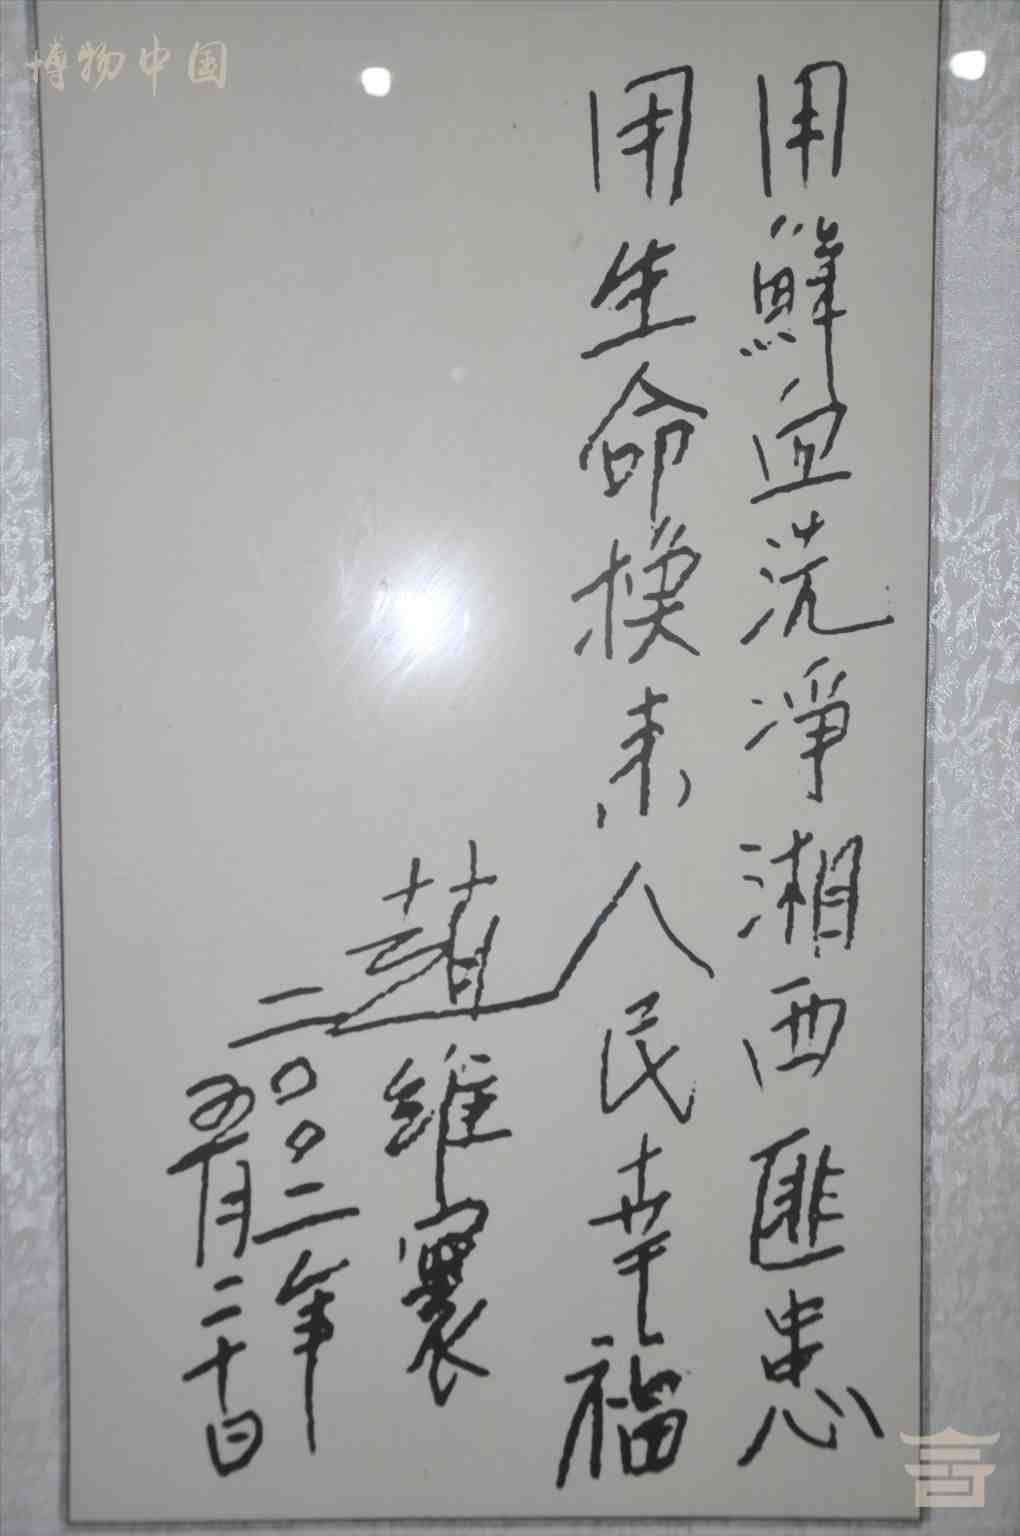 用鮮血洗淨湘西匪患
用生命换来人民幸福
趙維寰
二〇〇二年
五月二十日
博物中国